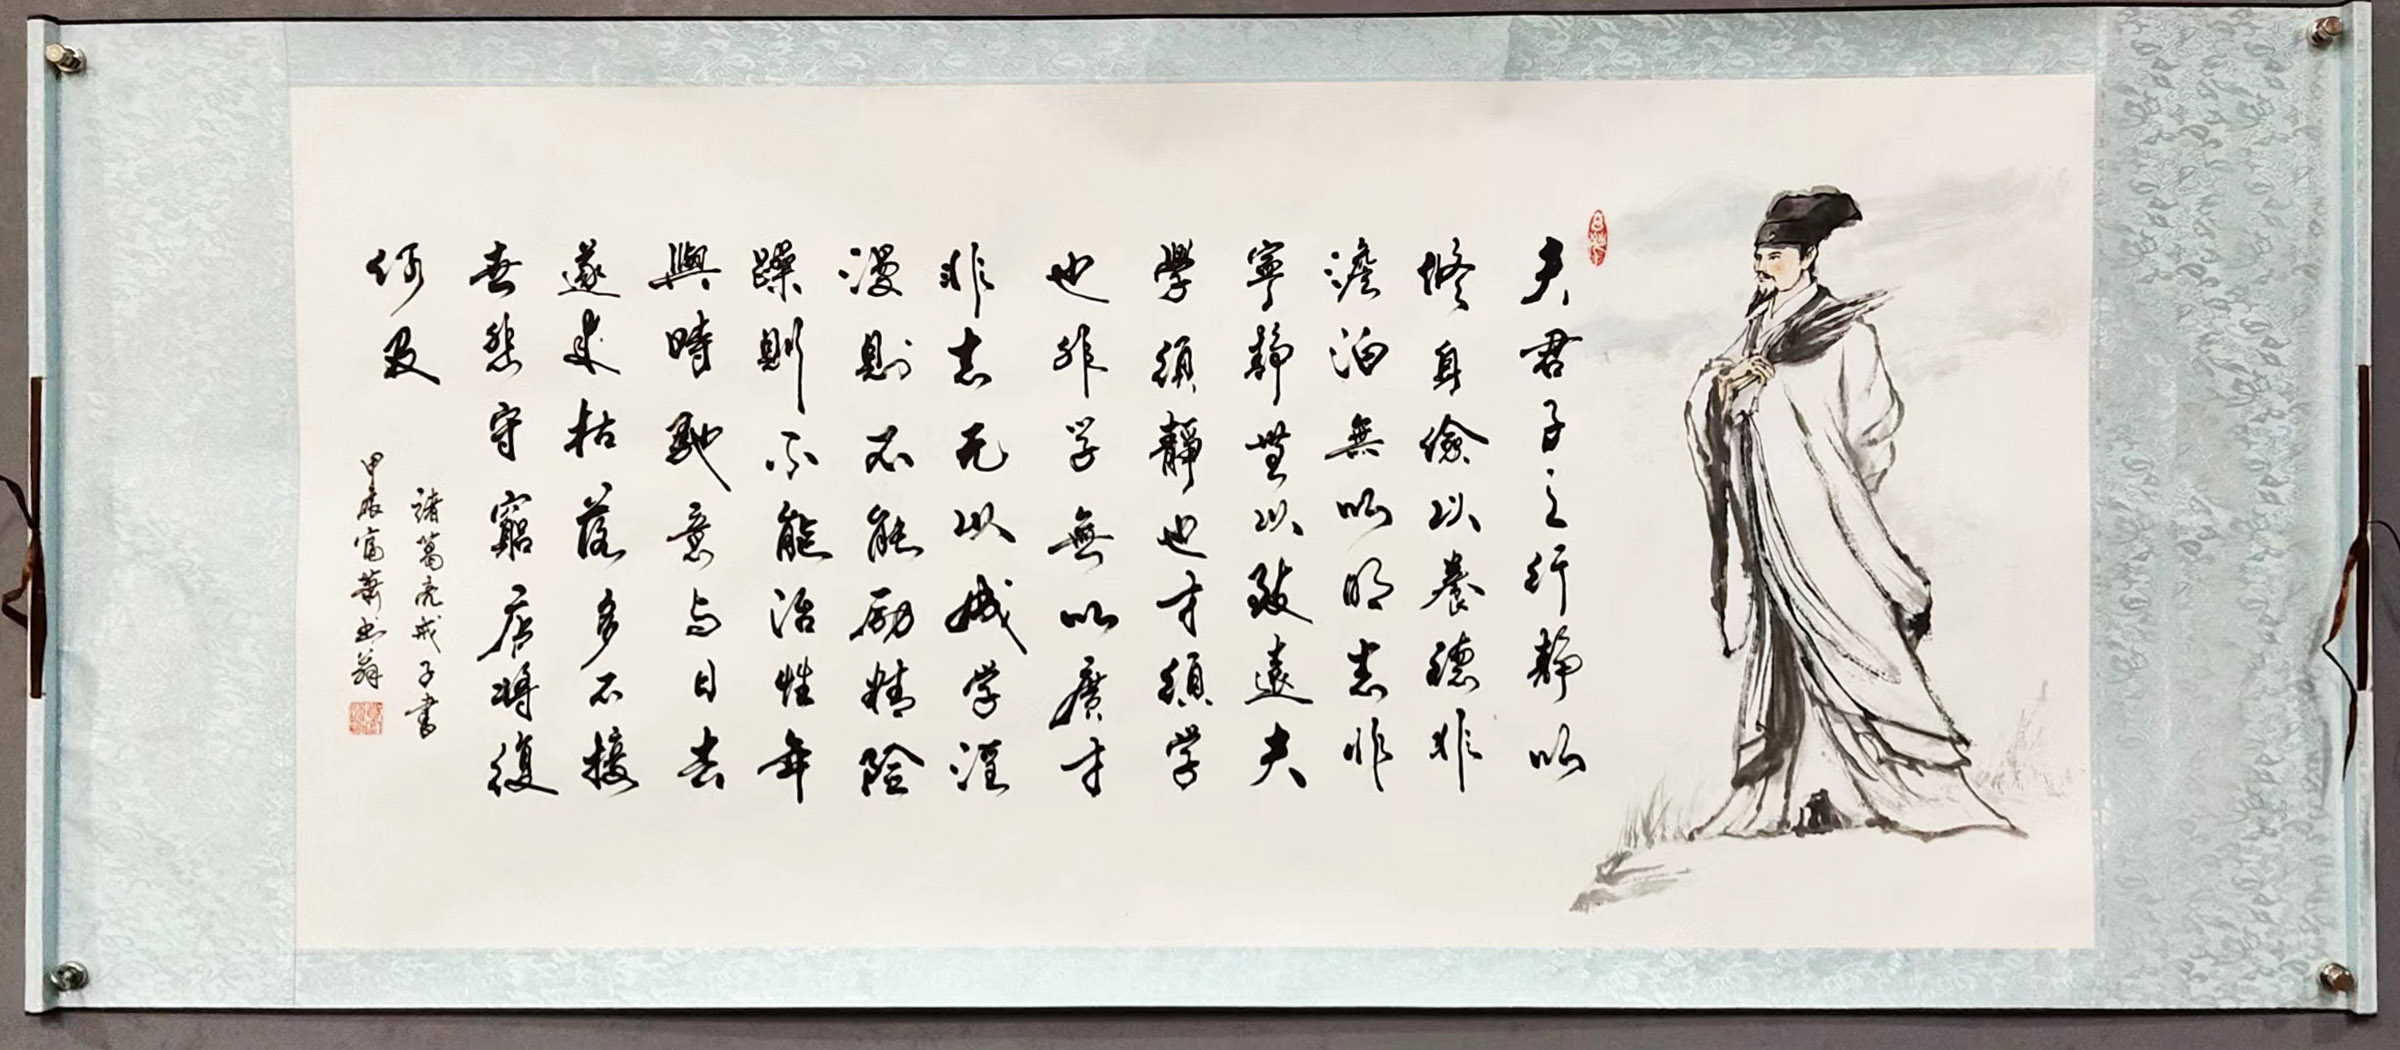 夫君子之行靜以
修身儉以養德非
澹泊無以明志非
寧靜無以致遠夫
學須靜也才須学
也非学無以廣才
非志无以成学淫
漫則不能励精险
躁則不能治性年
與時馳意与日去
遂成枯落多不接
世悲守窮庐将復
何及
諸葛亮戒子書
甲辰